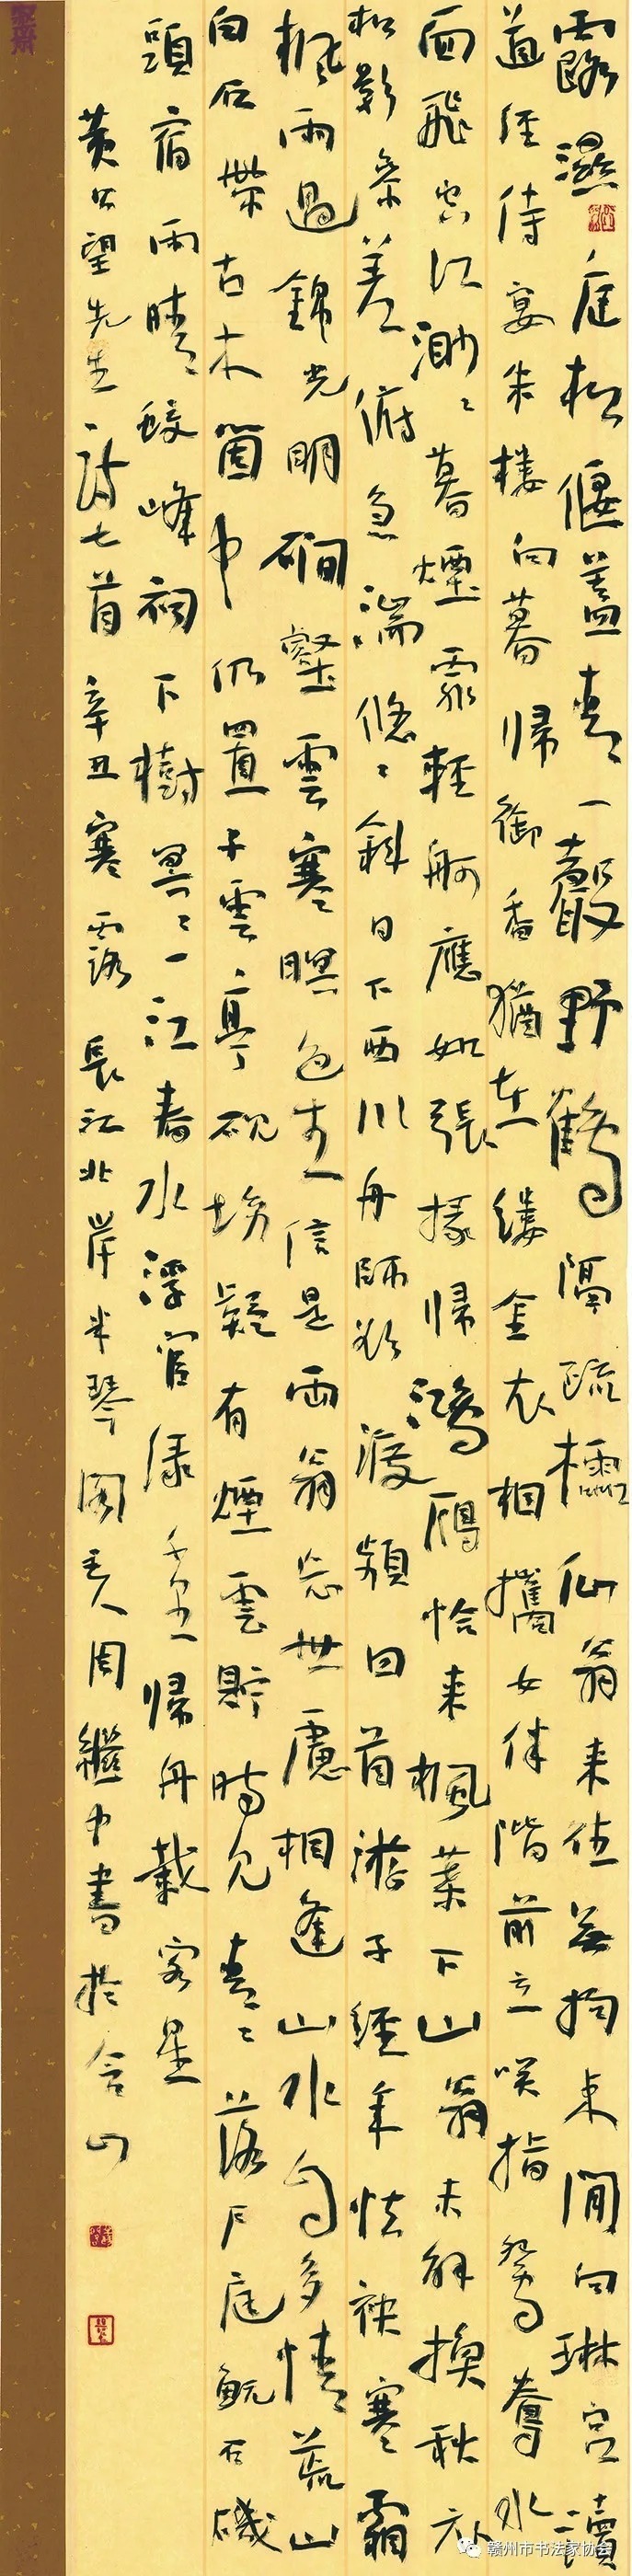 露濕庭松偃蓋青一聲野鶴隔疏欞仙翁来往無拘束閒向琳宮讀
道經侍宴朱樓向暮歸御香猶在縷金衣相攜女伴階前立咲指鴛鴦水
面飛空江渺ミ暮煙霏輕舸應如張掾歸鴻雁恰来楓葉下山翁未解換秋衣
松影参差俯急湍悠ミ斜日下西川舟師欲渡頻回首游子經年怯被寒霜
楓雨過錦光明磵壑雲寒暝色生信是兩翁忘世慮相逢山水自多情荒山
白石帶古木箇中仍置子雲亭硯坳疑有煙雲貯時見青ミ落戶庭魷石磯
頭宿雨晴蛟峰祠下樹冥ミ一江春水浮官渌千里歸舟載客星
黄公望先生詩七首辛丑寒露長江北岸半琴閣主人周繼中書於含山
赣州市书法家协会